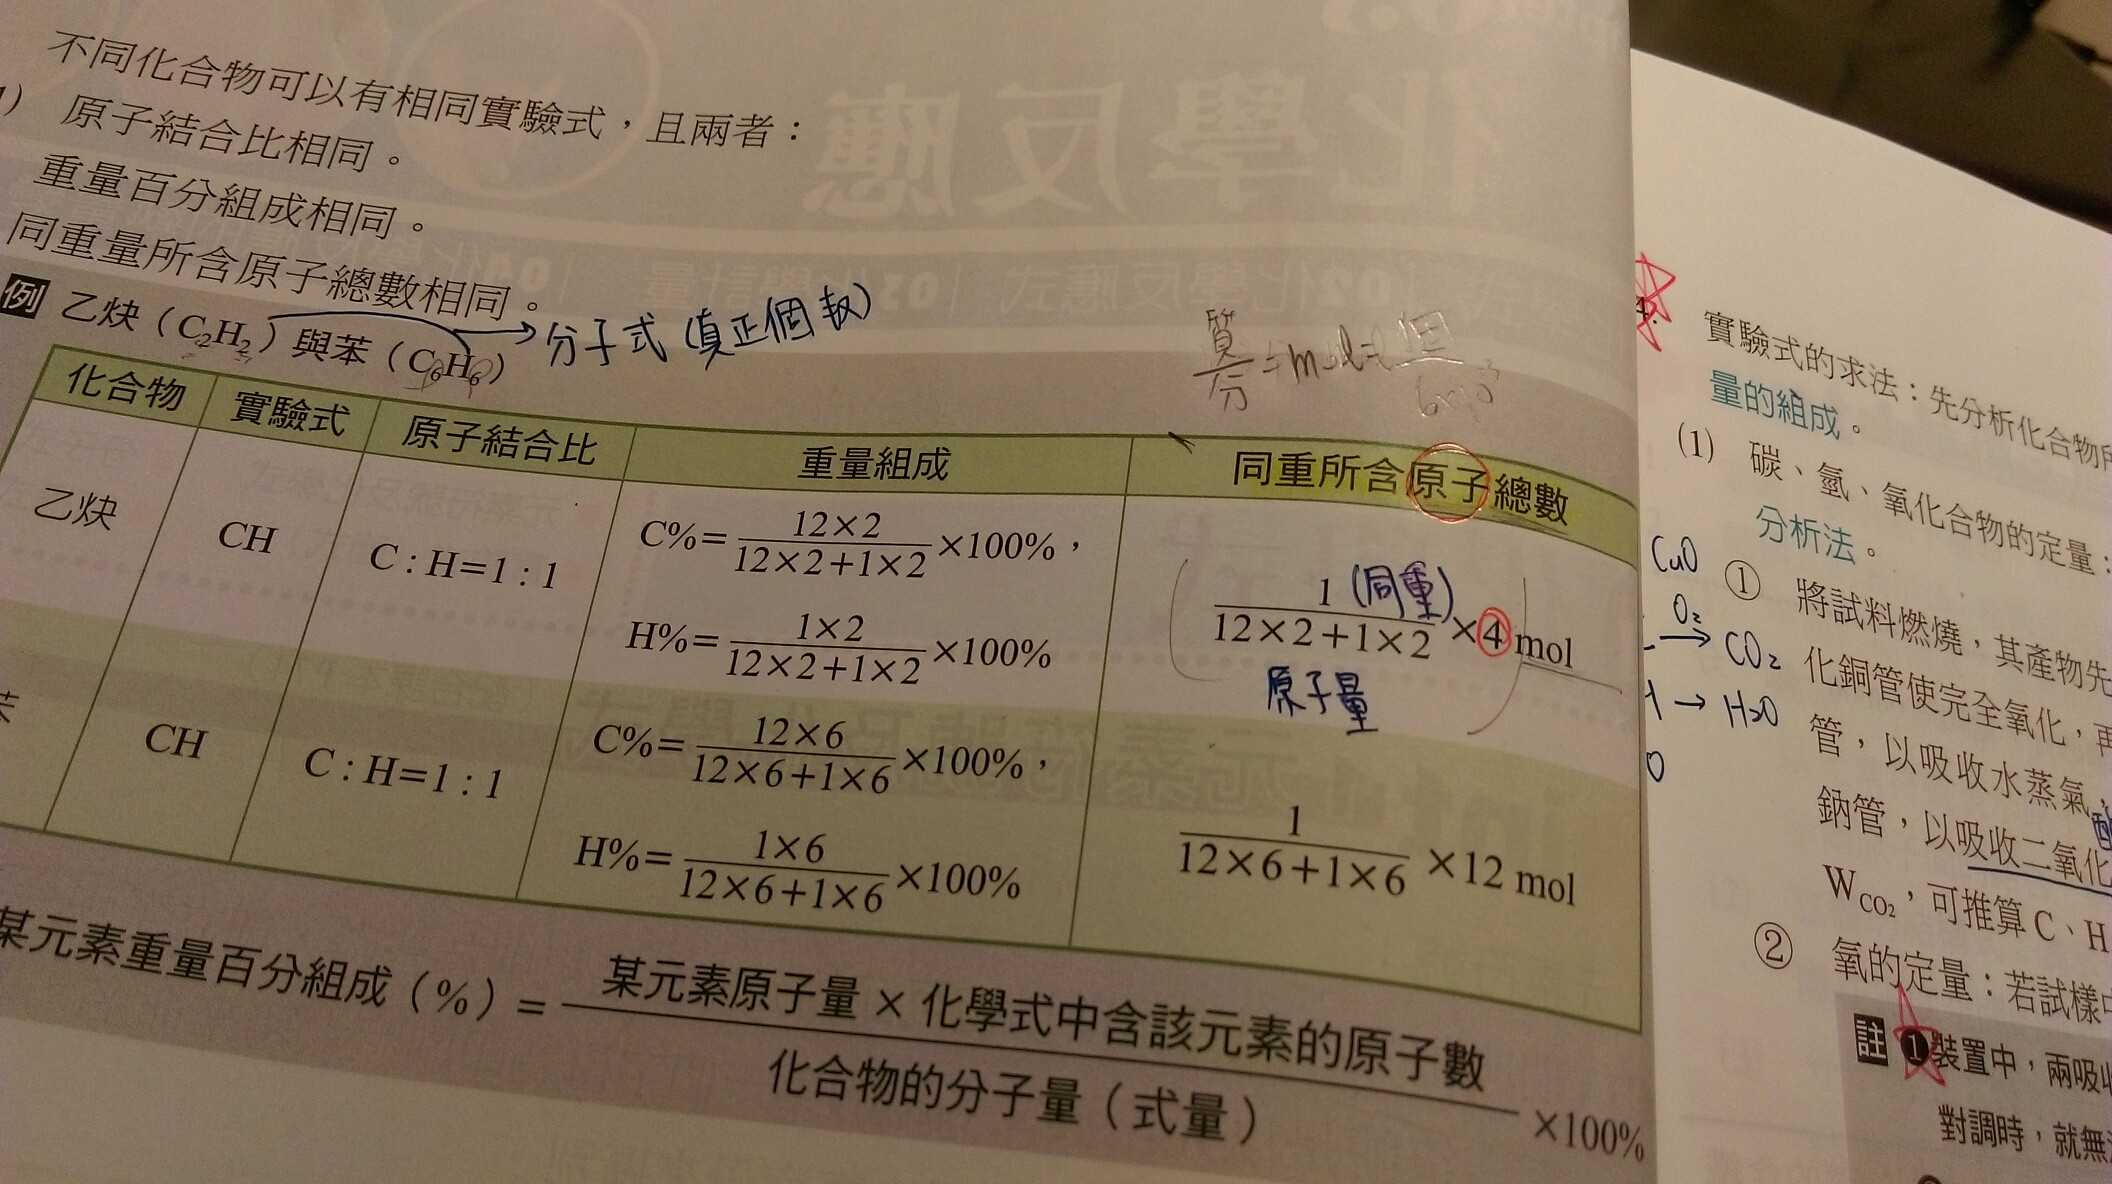 不同化合物可以有相同實驗式，且兩者：
原子結合比相同。
重量百分組成相同。
同重量所含原子總數相同。
例 乙炔（C₂H₂）與苯（C₆H₆）
分子式（真正個數）
質/分=mol=個/
化合物 實驗式 原子結合比 重量組成 同重所含原子總數
乙炔 CH C : H=1 : 1
C%= 12×2 / 12×2+1×2 ×100%，
H%= 1×2 / 12×2+1×2 ×100%
1 (同重) / 12×2+1×2 ×4 mol
原子量
CH C : H=1 : 1
C%= 12×6 / 12×6+1×6 ×100%，
H%= 1×6 / 12×6+1×6 ×100%
1 / 12×6+1×6 ×12 mol
某元素重量百分組成（%）= 某元素原子量 × 化學式中含該元素的原子數 / 化合物的分子量（式量） ×100%
實驗式的求法：先分析化合物
量的組成。
(1) 碳、氫、氧化合物的定量：
分析法。
CuO
O₂
→ CO₂
→ H₂O
① 將試料燃燒，其產物先
化銅管使完全氧化，再
管，以吸收水蒸氣，
鈉管，以吸收二氧化
W_CO₂，可推算 C、H
② 氧的定量：若試樣中
註 ❶ 裝置中，兩吸收
對調時，就無